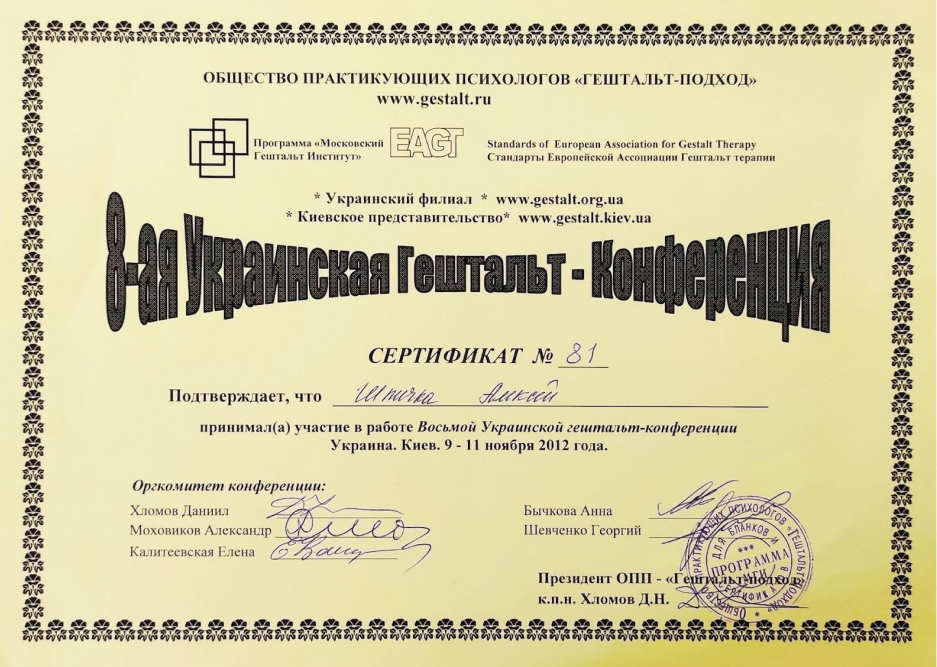 ОБЩЕСТВО ПРАКТИКУЮЩИХ ПСИХОЛОГОВ «ГЕШТАЛЬТ-ПОДХОД»
www.gestalt.ru
Программа «Московский Гештальт Институт»
EAGT
Standards of European Association for Gestalt Therapy
Стандарты Европейской Ассоциации Гештальт терапии
* Украинский филиал * www.gestalt.org.ua
* Киевское представительство* www.gestalt.kiev.ua
8-ая Украинская Гештальт - Конференция
СЕРТИФИКАТ № 81
Подтверждает, что Шпичка Алексей
принимал(а) участие в работе Восьмой Украинской гештальт-конференции
Украина. Киев. 9 - 11 ноября 2012 года.
Оргкомитет конференции:
Хломов Даниил
Моховиков Александр
Калитеевская Елена
Бычкова Анна
Шевченко Георгий
Президент ОПП - «Гештальт-подход»
к.п.н. Хломов Д.Н.
ДЛЯ БЛАНКОВ И
***
ПРОГРАММА
МГИ